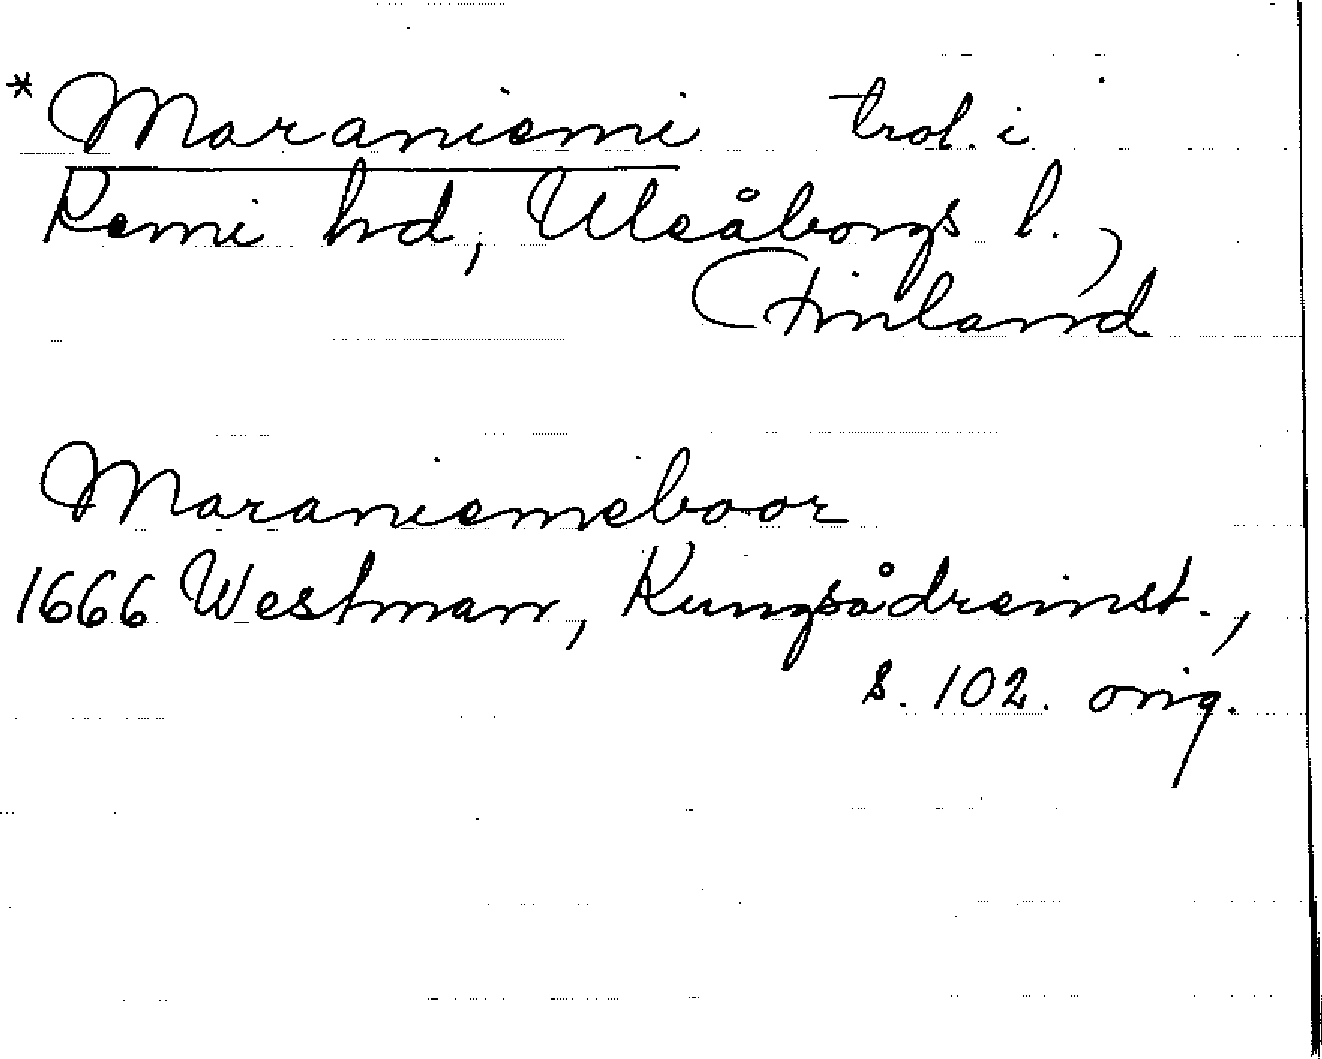 *Maraniemi trol. i
Kemi hd, Uleåborgs l.,
Finland
Maraniemeboor
1666 Westman, Kungsådreinst.,
s. 102. orig.